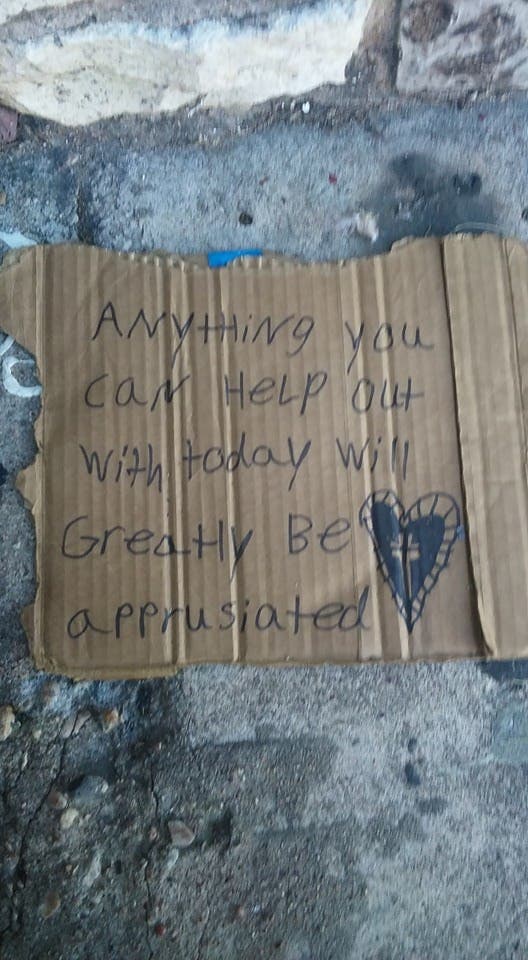 ANYtHiNg you
CAN HeLP out
With today Will
Greatly Be
apprusiated